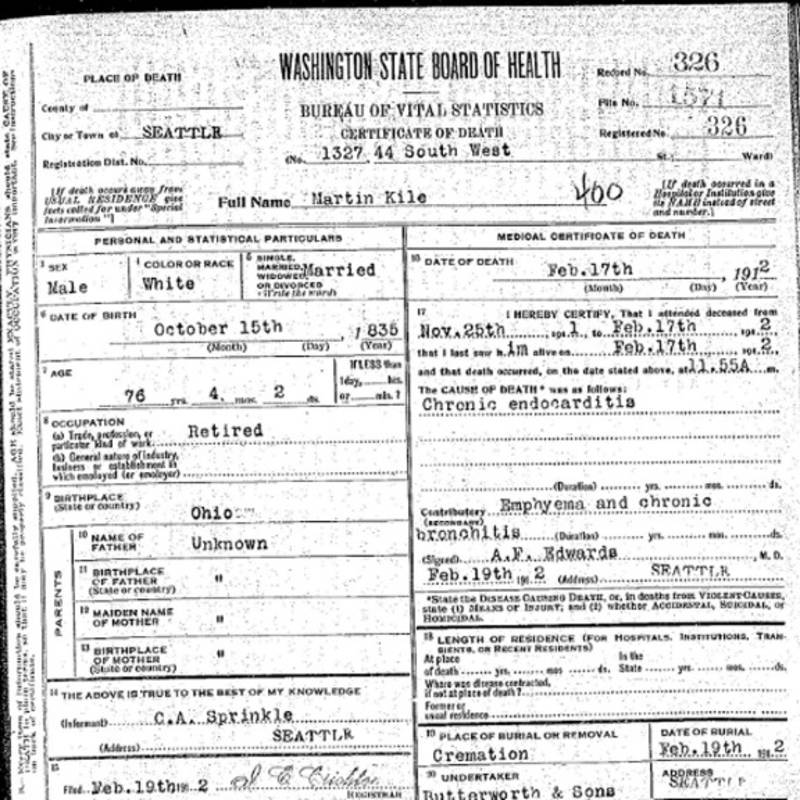 WASHINGTON STATE BOARD OF HEALTH
BUREAU OF VITAL STATISTICS
CERTIFICATE OF DEATH
PLACE OF DEATH
County of
City or Town of SEATTLE
Registration Dist. No.
(No. 1327 44 South West St.; Ward)
Record No. 326
File No. 1571
Registered No. 326
[If death occurs away from
USUAL RESIDENCE give
facts called for under "Special
Information"]
Full Name Martin Kile
400
[If death occurred in a
Hospital or Institution give
its NAME instead of street
and number.]
PERSONAL AND STATISTICAL PARTICULARS
3 SEX
Male
4 COLOR OR RACE
White
5 SINGLE,
MARRIED,
WIDOWED,
OR DIVORCED
Write the word
Married
6 DATE OF BIRTH
October 15th, 1835
(Month) (Day) (Year)
7 AGE
76 yrs. 4 mos. 2 ds.
If LESS than
1 day, hrs.
or min.?
8 OCCUPATION
(a) Trade, profession, or
particular kind of work Retired
(b) General nature of industry,
business or establishment in
which employed (or employer)
9 BIRTHPLACE
(State or country)
Ohio
PARENTS
10 NAME OF
FATHER Unknown
11 BIRTHPLACE
OF FATHER "
(State or country)
12 MAIDEN NAME
OF MOTHER "
13 BIRTHPLACE
OF MOTHER "
(State or country)
14 THE ABOVE IS TRUE TO THE BEST OF MY KNOWLEDGE
(Informant) C.A. Sprinkle
(Address) SEATTLE
15
Filed Feb.19th 191 2
REGISTRAR
MEDICAL CERTIFICATE OF DEATH
16 DATE OF DEATH
Feb.17th 1912
(Month) (Day) (Year)
17 I HEREBY CERTIFY, That I attended deceased from
Nov.25th 191 1, to Feb.17th 191 2,
that I last saw him alive on Feb.17th 191 2,
and that death occurred, on the date stated above, at 11.55A m.
The CAUSE OF DEATH* was as follows:
Chronic endocarditis
(Duration) yrs. mos. ds.
Contributory Emphyema and chronic
(SECONDARY)
bronchitis (Duration) yrs. mos. ds.
(Signed) A.F. Edwards, M.D.
Feb.19th 191 2 (Address) SEATTLE
*State the DISEASE CAUSING DEATH, or, in deaths from VIOLENT CAUSES,
state (1) MEANS OF INJURY; and (2) whether ACCIDENTAL, SUICIDAL, or
HOMICIDAL.
18 LENGTH OF RESIDENCE (FOR HOSPITALS, INSTITUTIONS, TRAN-
SIENTS, OR RECENT RESIDENTS)
At place In the
of death yrs. mos. ds. State yrs. mos. ds.
Where was disease contracted,
if not at place of death?
Former or
usual residence
19 PLACE OF BURIAL OR REMOVAL
Cremation
DATE OF BURIAL
Feb.19th 191 2
20 UNDERTAKER
Butterworth & Sons
ADDRESS
SEATTLE